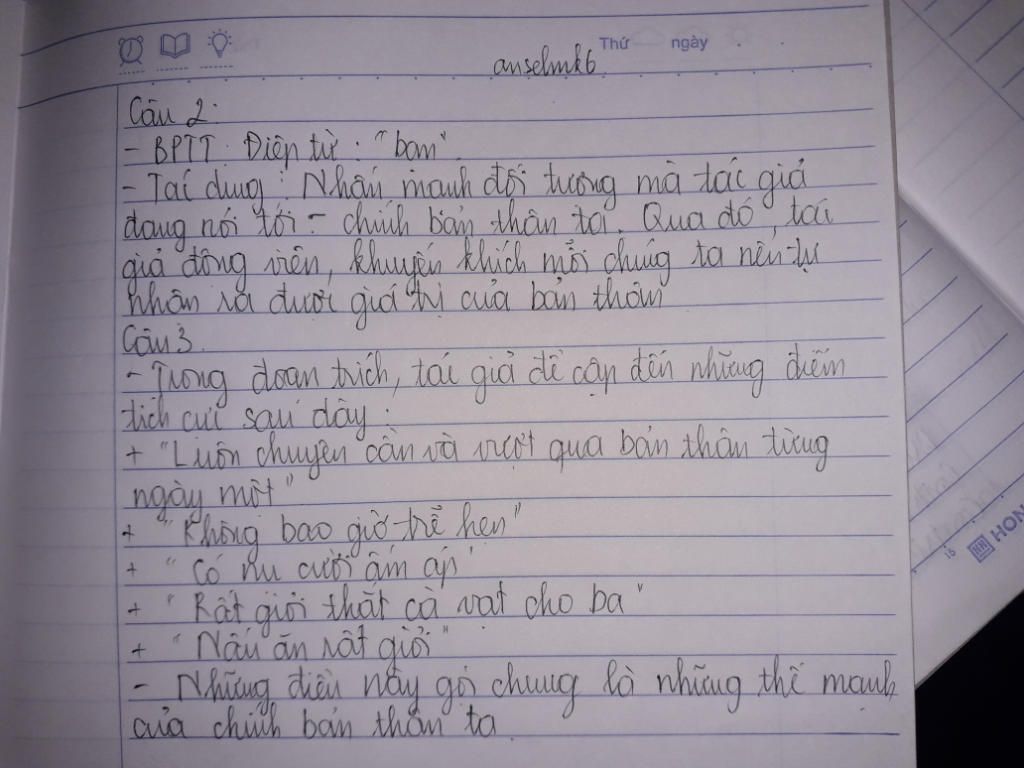 Thứ ngày
anselmk6
Câu 2:
- BPTT: Điệp từ: "bạn"
- Tác dụng: Nhấn mạnh đối tượng mà tác giả
đang nói tới - chính bản thân ta. Qua đó, tác
giả động viên, khuyến khích mỗi chúng ta nên tự
nhận ra được giá trị của bản thân
Câu 3.
- Trong đoạn trích, tác giả đề cập đến những điểm
tích cực sau đây:
+ "Luôn chuyên cần và vượt qua bản thân từng
ngày một"
+ "Không bao giờ trễ hẹn"
+ "Có nụ cười ấm áp"
+ "Rất giỏi thắt cà vạt cho ba"
+ "Nấu ăn rất giỏi"
- Những điều này gọi chung là những thế mạnh
của chính bản thân ta
HON